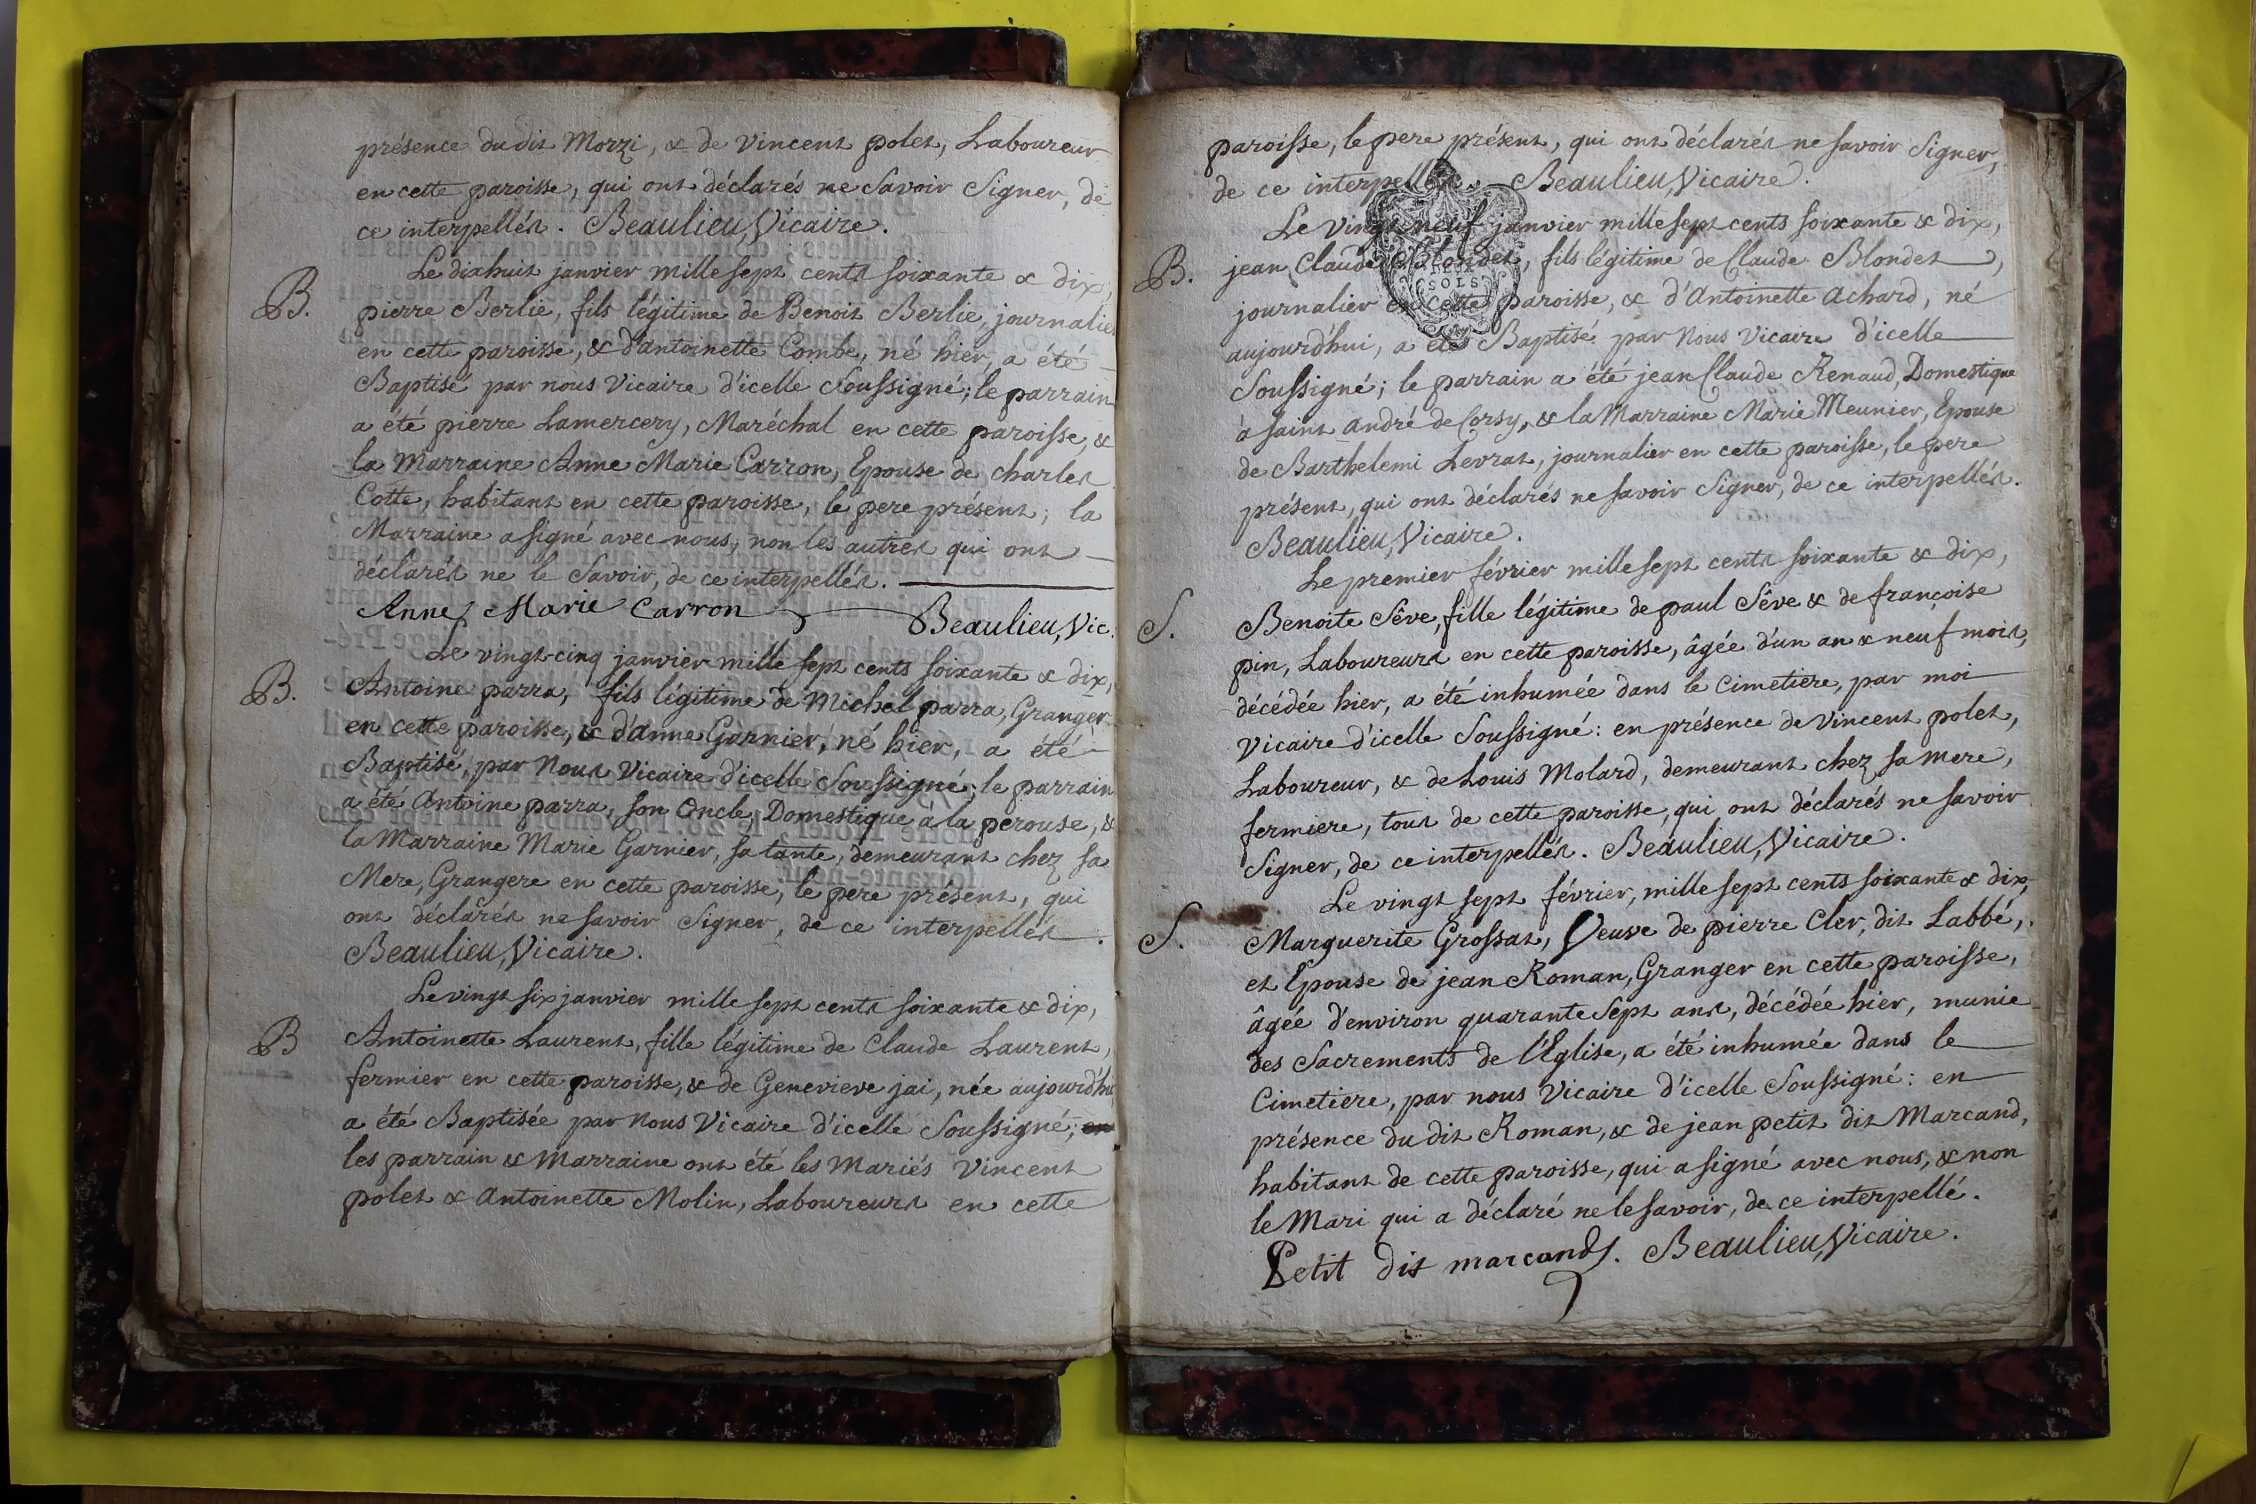 présence du dit Morzi, & de Vincent polet, Laboureur
en cette paroisse, qui ont déclarés ne Savoir Signer, de
ce interpellés. Beaulieu, Vicaire.
Le dixhuit janvier mille sept cents soixante & dix,
B. pierre Berlie, fils légitime de Benoit Berlie, journalier
en cette paroisse, & d'antoinette Combe, né hier, a été
Baptisé par nous Vicaire d'icelle Soussigné; le parrain
a été pierre Lamercery, Maréchal en cette paroisse, &
la Marraine Anne Marie Carron, Epouse de charles
Cotte, habitant en cette paroisse, le pere présent; la
Marraine a signé avec nous, non les autres qui ont
déclarés ne le Savoir, de ce interpellés.
Anne Marie Carron Beaulieu, Vic.
Le vingt-cinq janvier mille sept cents soixante & dix,
B. Antoine parra, fils légitime de Michel parra, Granger
en cette paroisse, & d'anne Garnier, né hier, a été
Baptisé, par Nous Vicaire d'icelle Soussigné; le parrain
a été Antoine parra, son Oncle, Domestique a la perouse, &
la Marraine Marie Garnier, sa tante, demeurant chez sa
Mere, Grangere en cette paroisse, le pere présent, qui
ont déclarés ne savoir Signer, de ce interpellés.
Beaulieu, Vicaire.
Le vingt six janvier mille sept cents soixante & dix,
B Antoinette Laurent, fille légitime de Claude Laurent,
fermier en cette paroisse, & de Genevieve jai, née aujourd'hui
a été Baptisée par Nous Vicaire d'icelle Soussigné;
les parrain & Marraine ont été les Mariés Vincent
polet & Antoinette Molin, Laboureurs en cette
paroisse, le pere présent, qui ont déclarés ne savoir Signer,
de ce interpellés. Beaulieu, Vicaire.
Le Vingt neuf janvier mille sept cents soixante & dix,
B. jean Claude Blondet, fils légitime de Claude Blondet,
journalier en cette paroisse, & d'Antoinette achard, né
aujourd'hui, a été Baptisé par Nous Vicaire d'icelle
Soussigné; le parrain a été jean Claude Renaud, Domestique
à saint andré de Corsy, & la Marraine Marie Meunier, Epouse
de Barthelemi Levrat, journalier en cette paroisse, le pere
présent, qui ont déclarés ne savoir Signer, de ce interpellés.
Beaulieu, Vicaire.
DEUX
SOLS
Le premier février mille sept cents soixante & dix,
S. Benoite Sêve, fille légitime de paul Sêve & de françoise
pin, Laboureurs en cette paroisse, âgée d'un an & neuf mois,
décédée hier, a été inhumée dans le Cimetiere, par moi
Vicaire d'icelle Soussigné: en présence de Vincent polet,
Laboureur, & de Louis Molard, demeurant chez sa mere,
fermiere, tous de cette paroisse, qui ont déclarés ne savoir
Signer, de ce interpellés. Beaulieu, Vicaire.
Le vingt sept février, mille sept cents soixante & dix,
S. Marguerite Grossat, Veuve de pierre Cler, dit Labbé,
et Epouse de jean Roman, Granger en cette paroisse,
âgée d'environ quarante Sept ans, décédée hier, munie
des Sacrements de l'Eglise, a été inhumée dans le
Cimetiere, par nous Vicaire d'icelle Soussigné: en
présence du dit Roman, & de jean petit dit Marcand,
habitant de cette paroisse, qui a signé avec nous, & non
le Mari qui a déclaré ne le savoir, de ce interpellé.
Petit dit marcand. Beaulieu, Vicaire.